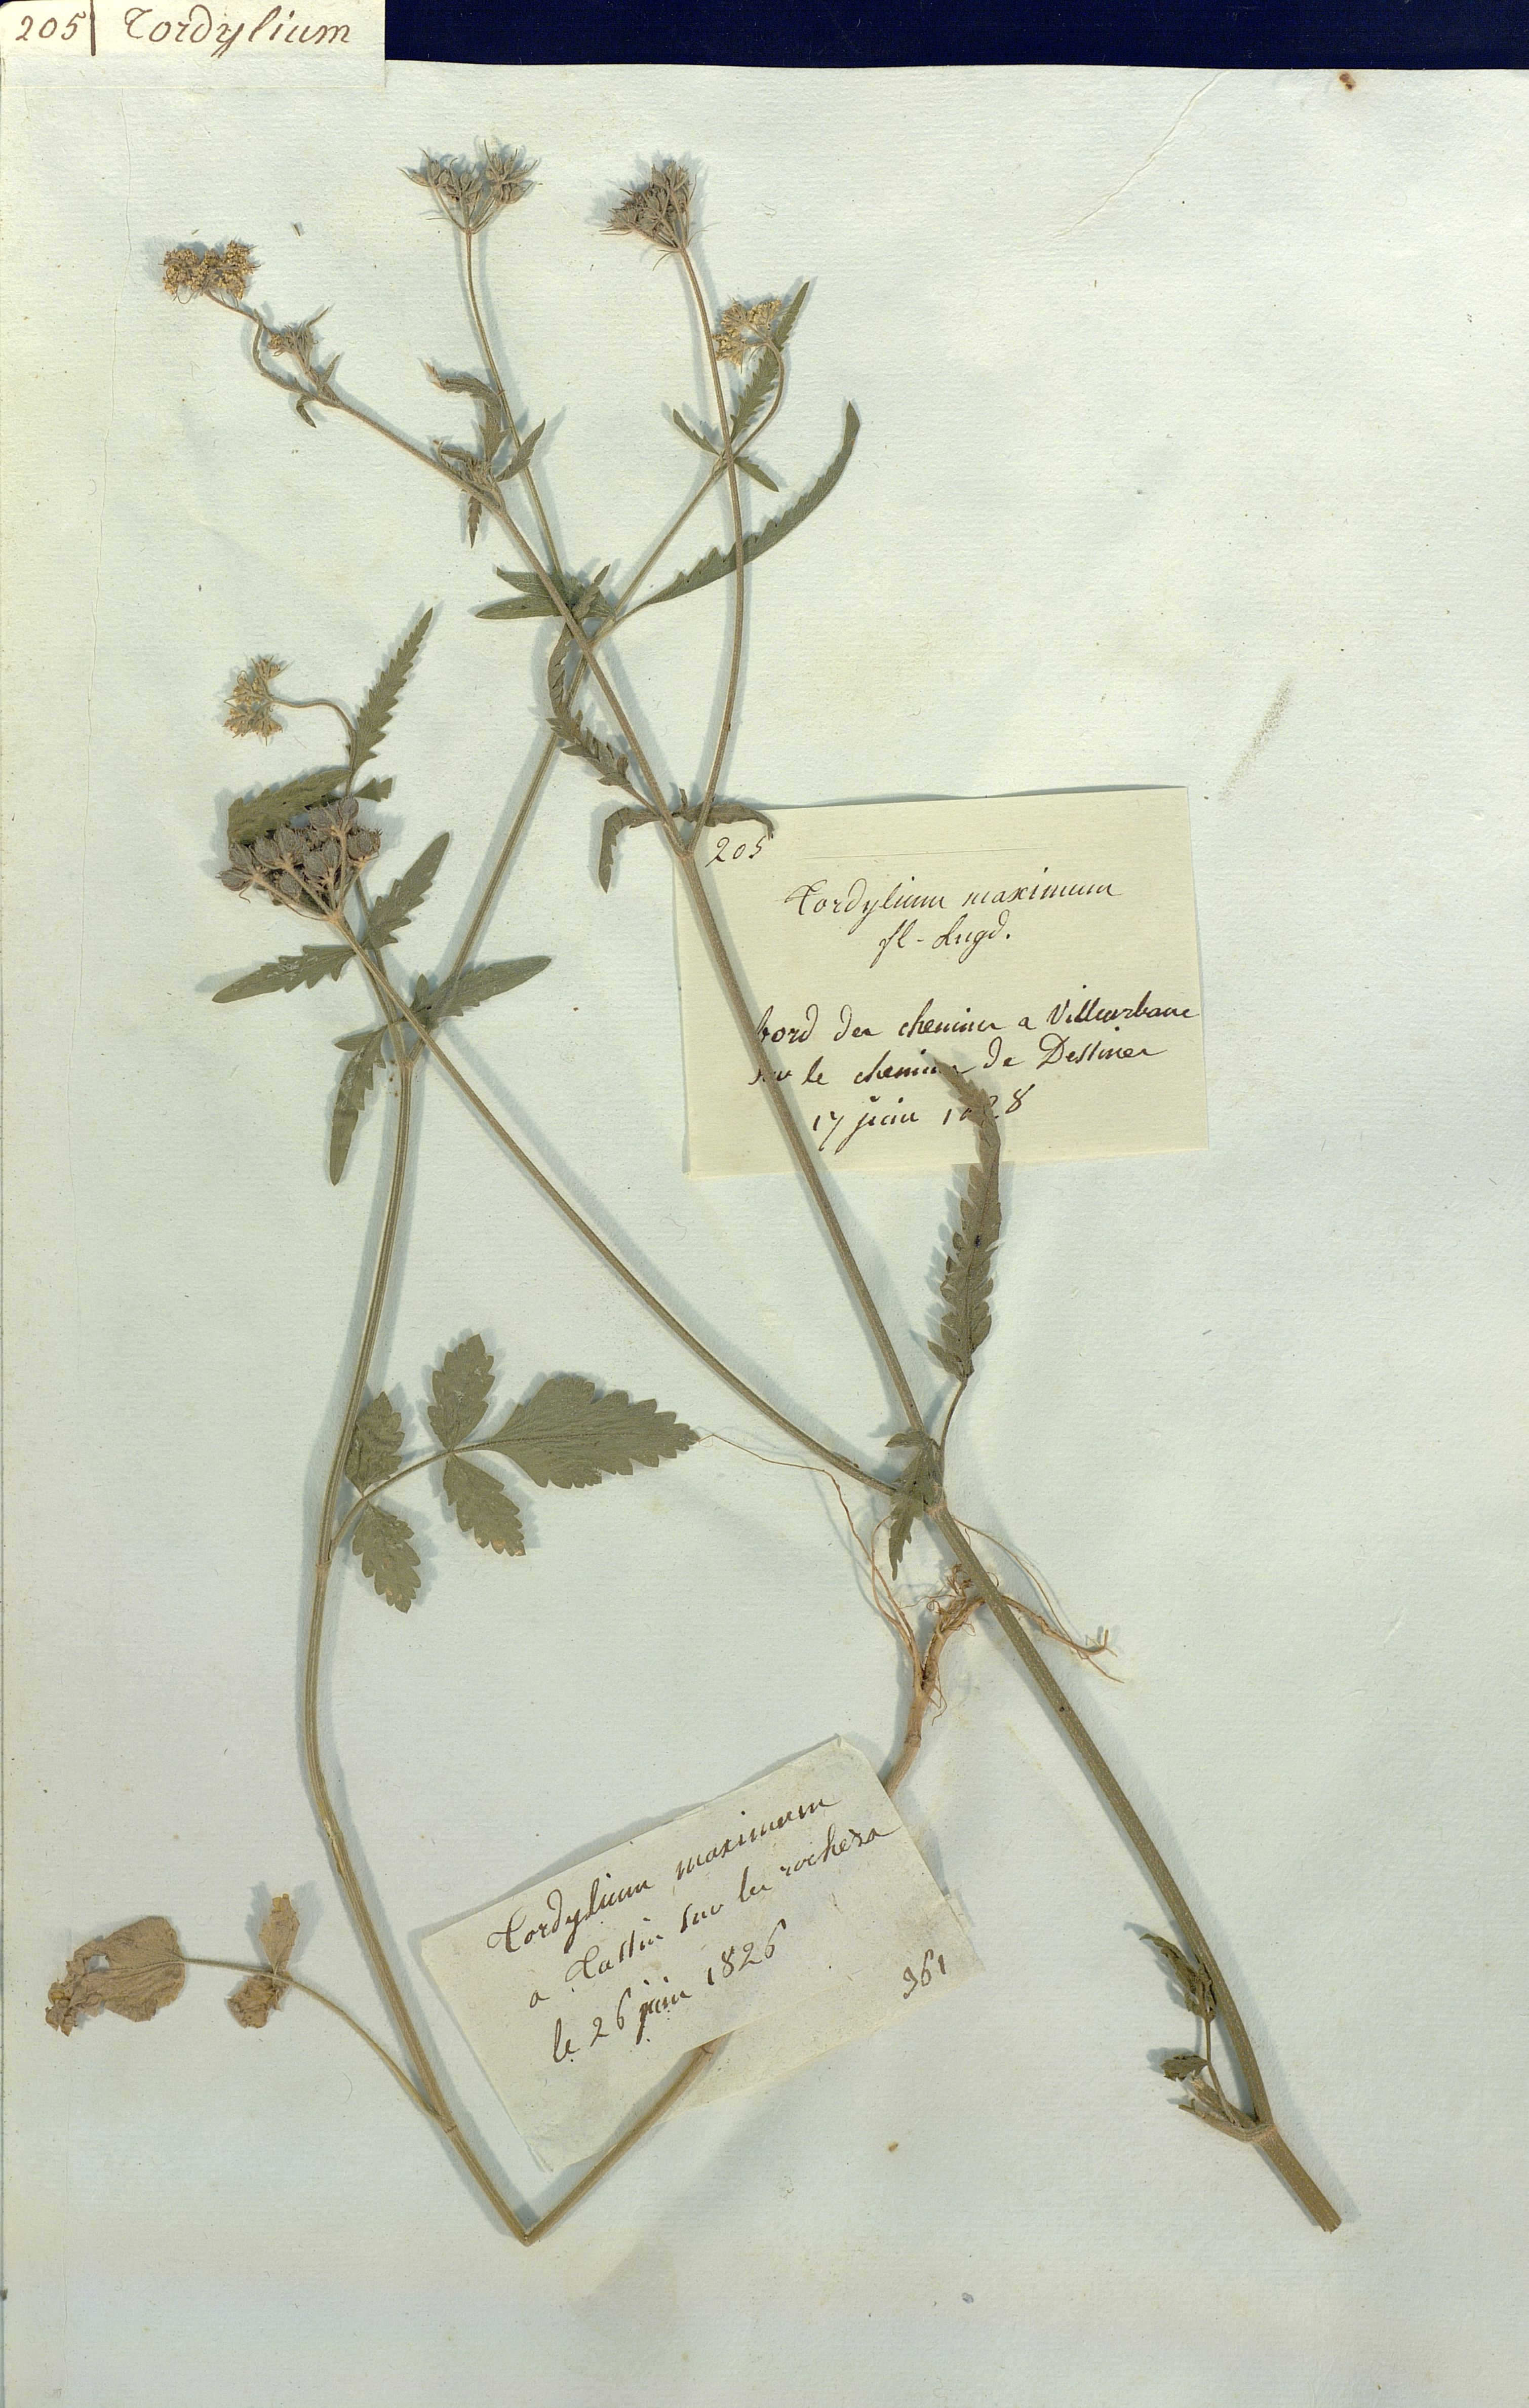 205 Tordylium
205
Tordylium maximum
fl - Lugd.
bord des chemins a Villeurbanne
sur le chemin de
17 juin 1828
Tordylium maximum
a Tassin sur les rochers
le 26 juin 1826
361